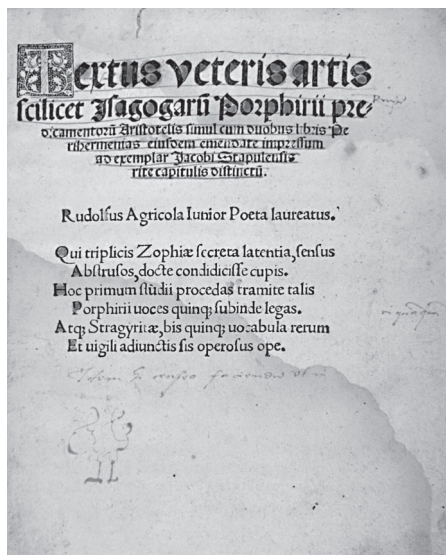 Textus veteris artis
scilicet Isagogarū Porphirii pre-
dicamentorū Aristotelis simul cum duobus libris Pe
rihermenias eiusdem emendate impressum
ad exemplar Jacobi Stapulensis
rite capitulis distinctū.
Rudolfus Agricola Iunior Poeta laureatus.
Qui triplicis Zophiæ secreta latentia, sensus
Abstrusos, docte condidicisse cupis.
Hoc primum studii procedas tramite talis
Porphirii uoces quinq; subinde legas.
Atq; Stragyritæ, bis quinq; uocabula rerum
Et uigili adiunctis sis operosus ope.